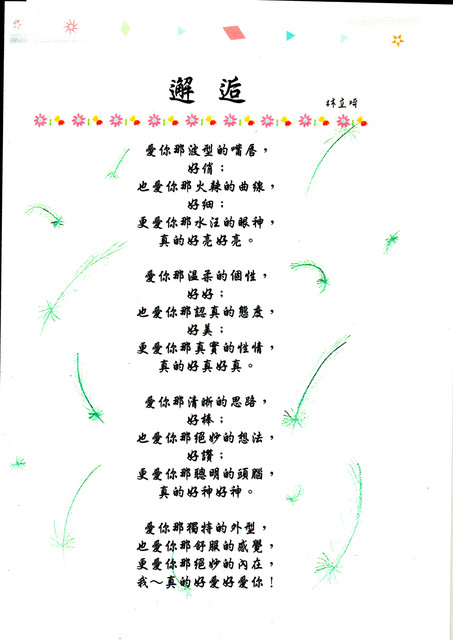 邂逅
林立琦
愛你那波型的嘴唇，
好俏；
也愛你那火辣的曲線，
好細；
更愛你那水汪的眼神，
真的好亮好亮。
愛你那溫柔的個性，
好好；
也愛你那認真的態度，
好美；
更愛你那真實的性情，
真的好真好真。
愛你那清晰的思路，
好棒；
也愛你那絕妙的想法，
好讚；
更愛你那聰明的頭腦，
真的好神好神。
愛你那獨特的外型，
也愛你那舒服的感覺，
更愛你那絕妙的內在，
我～真的好愛好愛你！